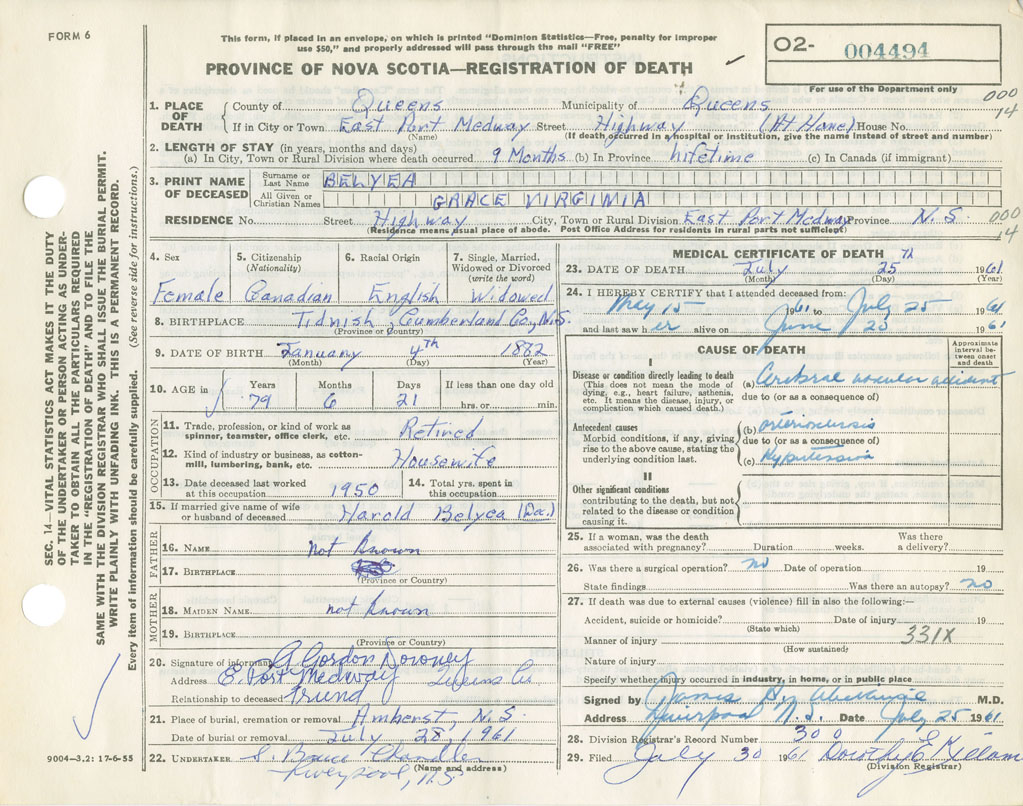 FORM 6
This form, if placed in an envelope, on which is printed "Dominion Statistics—Free, penalty for improper
use $50," and properly addressed will pass through the mail "FREE"
PROVINCE OF NOVA SCOTIA—REGISTRATION OF DEATH
O2- 004494
For use of the Department only
000
14
1. PLACE OF DEATH County of Queens Municipality of Queens
If in City or Town East Port Medway Street Highway (At Home) House No.
(Name) (If death occurred in a hospital or institution, give the name instead of street and number)
2. LENGTH OF STAY (in years, months and days)
(a) In City, Town or Rural Division where death occurred 9 Months (b) In Province lifetime (c) In Canada (if immigrant)
3. PRINT NAME OF DECEASED Surname or Last Name BELYEA
All Given or Christian Names GRACE VIRGINIA
RESIDENCE No. Street Highway City, Town or Rural Division East Port Medway Province N.S.
(Residence means usual place of abode. Post Office Address for residents in rural parts not sufficient)
000
14
4. Sex 5. Citizenship (Nationality) 6. Racial Origin 7. Single, Married, Widowed or Divorced (write the word)
Female Canadian English Widowed
8. BIRTHPLACE Tidnish, Cumberland Co., N.S.
(Province or Country)
9. DATE OF BIRTH January 4th 1882
(Month) (Day) (Year)
10. AGE in Years Months Days If less than one day old
79 6 21 hrs. or min.
OCCUPATION
11. Trade, profession, or kind of work as spinner, teamster, office clerk, etc. Retired
12. Kind of industry or business, as cotton-mill, lumbering, bank, etc. Housewife
13. Date deceased last worked at this occupation 1950 14. Total yrs. spent in this occupation
15. If married give name of wife or husband of deceased Harold Belyea (Dec.)
FATHER
16. NAME not known
17. BIRTHPLACE
(Province or Country)
MOTHER
18. MAIDEN NAME not known
19. BIRTHPLACE
(Province or Country)
20. Signature of informant A Gordon Downey
Address E. Port Medway Queens Co
Relationship to deceased Friend
21. Place of burial, cremation or removal Amherst, N.S.
Date of burial or removal July 28, 1961
22. UNDERTAKER S. Bruce Chandler
Liverpool, N.S. (Name and address)
MEDICAL CERTIFICATE OF DEATH
23. DATE OF DEATH July 25 th 1961
(Month) (Day) (Year)
24. I HEREBY CERTIFY that I attended deceased from:
May 15 1961 to July 25 1961
and last saw her alive on June 25 1961
CAUSE OF DEATH
Approximate interval between onset and death
I
Disease or condition directly leading to death (a) Cerebral vascular accident
(This does not mean the mode of dying, e.g., heart failure, asthenia, etc. It means the disease, injury, or complication which caused death.)
due to (or as a consequence of)
Antecedent causes (b) arteriosclerosis
Morbid conditions, if any, giving rise to the above cause, stating the underlying condition last.
due to (or as a consequence of)
(c) Hypertension
II
Other significant conditions
contributing to the death, but not related to the disease or condition causing it.
25. If a woman, was the death associated with pregnancy? Duration weeks. Was there a delivery?
26. Was there a surgical operation? no Date of operation 19
State findings Was there an autopsy? no
27. If death was due to external causes (violence) fill in also the following:—
Accident, suicide or homicide? Date of injury 19
(State which)
Manner of injury 331X
(How sustained)
Nature of injury
Specify whether injury occurred in industry, in home, or in public place
Signed by James M.D.
Address Liverpool N.S. Date July 25 1961
28. Division Registrar's Record Number 300
29. Filed July 30 1961 Dorothy E Killam
(Division Registrar)
SEC. 14—VITAL STATISTICS ACT MAKES IT THE DUTY
OF THE UNDERTAKER OR PERSON ACTING AS UNDER-
TAKER TO OBTAIN ALL THE PARTICULARS REQUIRED
IN THE "REGISTRATION OF DEATH" AND TO FILE THE
SAME WITH THE DIVISION REGISTRAR WHO SHALL ISSUE THE BURIAL PERMIT.
WRITE PLAINLY WITH UNFADING INK. THIS IS A PERMANENT RECORD.
Every item of information should be carefully supplied. (See reverse side for instructions.)
9004-3.2: 17-6-55